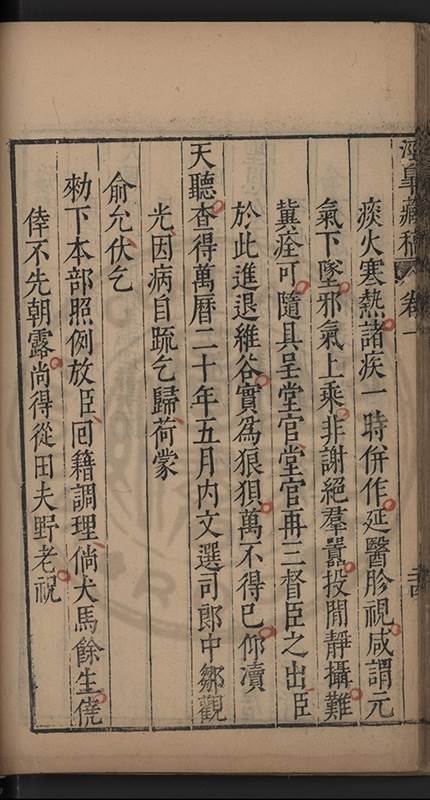 涇臯藏稿 卷一
痰火寒熱諸疾一時併作延醫胗視咸謂元
氣下墜邪氣上乘非謝絕羣囂投閒靜攝難
冀痊可隨具呈堂官堂官再三督臣之出臣
於此進退維谷實爲狼狽萬不得已仰瀆
天聽查得萬曆二十年五月內文選司郎中鄒觀
光因病自疏乞歸荷蒙
俞允伏乞
勑下本部照例放臣回籍調理倘犬馬餘生僥
倖不先朝露尚得從田夫野老祝